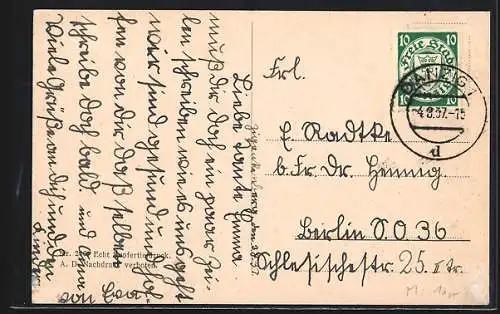 Liebe Tante Emma
muß Dir doch ein paar Zei-
len schreiben wie es uns geht
wir sind gesund und hof-
fen von dir daß selbe
schreibe doch bald. und
Viele Grüße an dich und
von Eva
Nr. Echt Kupfertiefdruck.
A. D. Nachdruck verboten.
Frl.
E. Radtke
b. Fr. Dr. Hennig
Berlin S.O. 36
Schlesischestr. 25. II Tr.
10 10
Freie Stadt
10 10
DANZIG 1
-4.8.37.-15
d